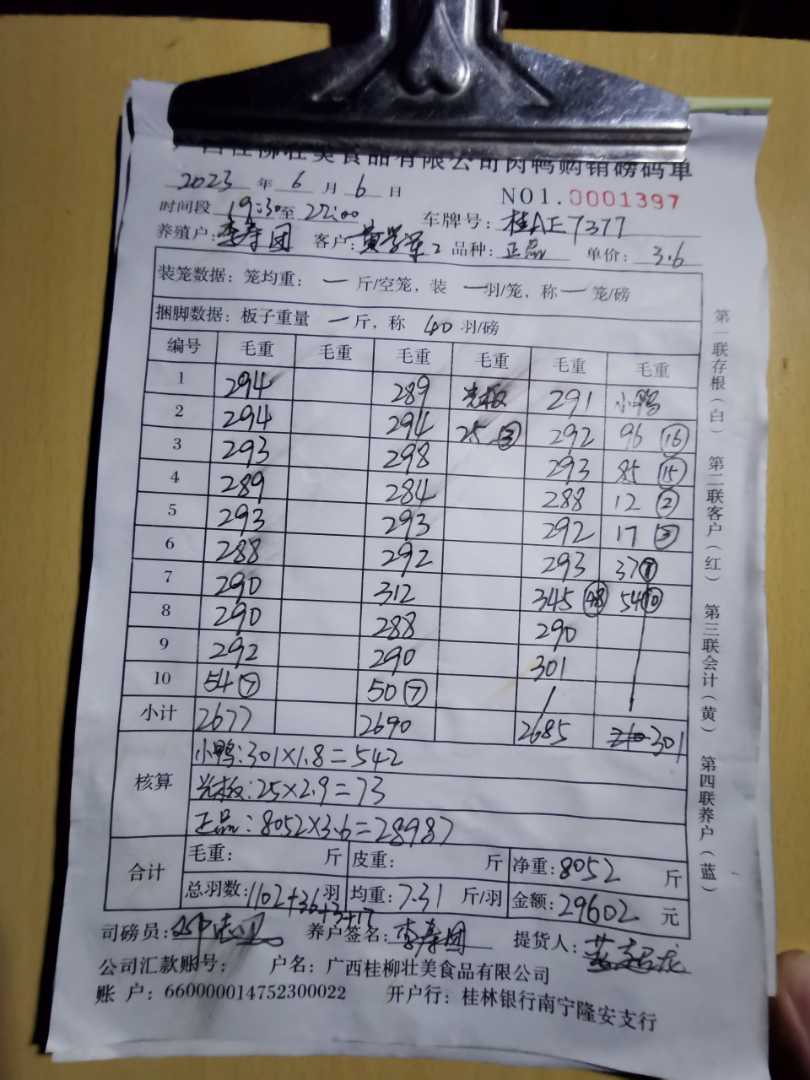 广西桂柳壮美食品有限公司肉鸭购销磅码单
2023 年 6 月 6 日 NO1.0001397
时间段 19:30至 22:00 车牌号: 桂AE7377
养殖户: 李寿团 客户: 2 品种: 正品 单价: 3.6
装笼数据: 笼均重: 一 斤/空笼, 装 一羽/笼, 称一 笼/磅
捆脚数据: 板子重量 一斤, 称 40 羽/磅
编号 毛重 毛重 毛重 毛重 毛重 毛重
1 294 289 光板 291 小鸭
2 294 294 25 ③ 292 96 ⑯
3 293 298 293 85 ⑮
4 289 284 288 12 ②
5 293 293 292 17 ③
6 288 292 293 37
7 290 312 345 54⑩
8 290 288 290
9 292 290 301
10 54⑦ 50⑦
小计 2677 2690 2685 301
核算
小鸭:301×1.8=542
光板:25×2.9=73
正品:8052×3.6=28987
合计
毛重: 斤 皮重: 斤 净重:8052 斤
总羽数:1102+36+3+17 羽 均重:7.31 斤/羽 金额:29602 元
司磅员: 养户签名:李寿团 提货人:
公司汇款账号: 户名:广西桂柳壮美食品有限公司
账 户:660000014752300022 开户行:桂林银行南宁隆安支行
第一联存根(白) 第二联客户(红) 第三联会计(黄) 第四联养户(蓝)